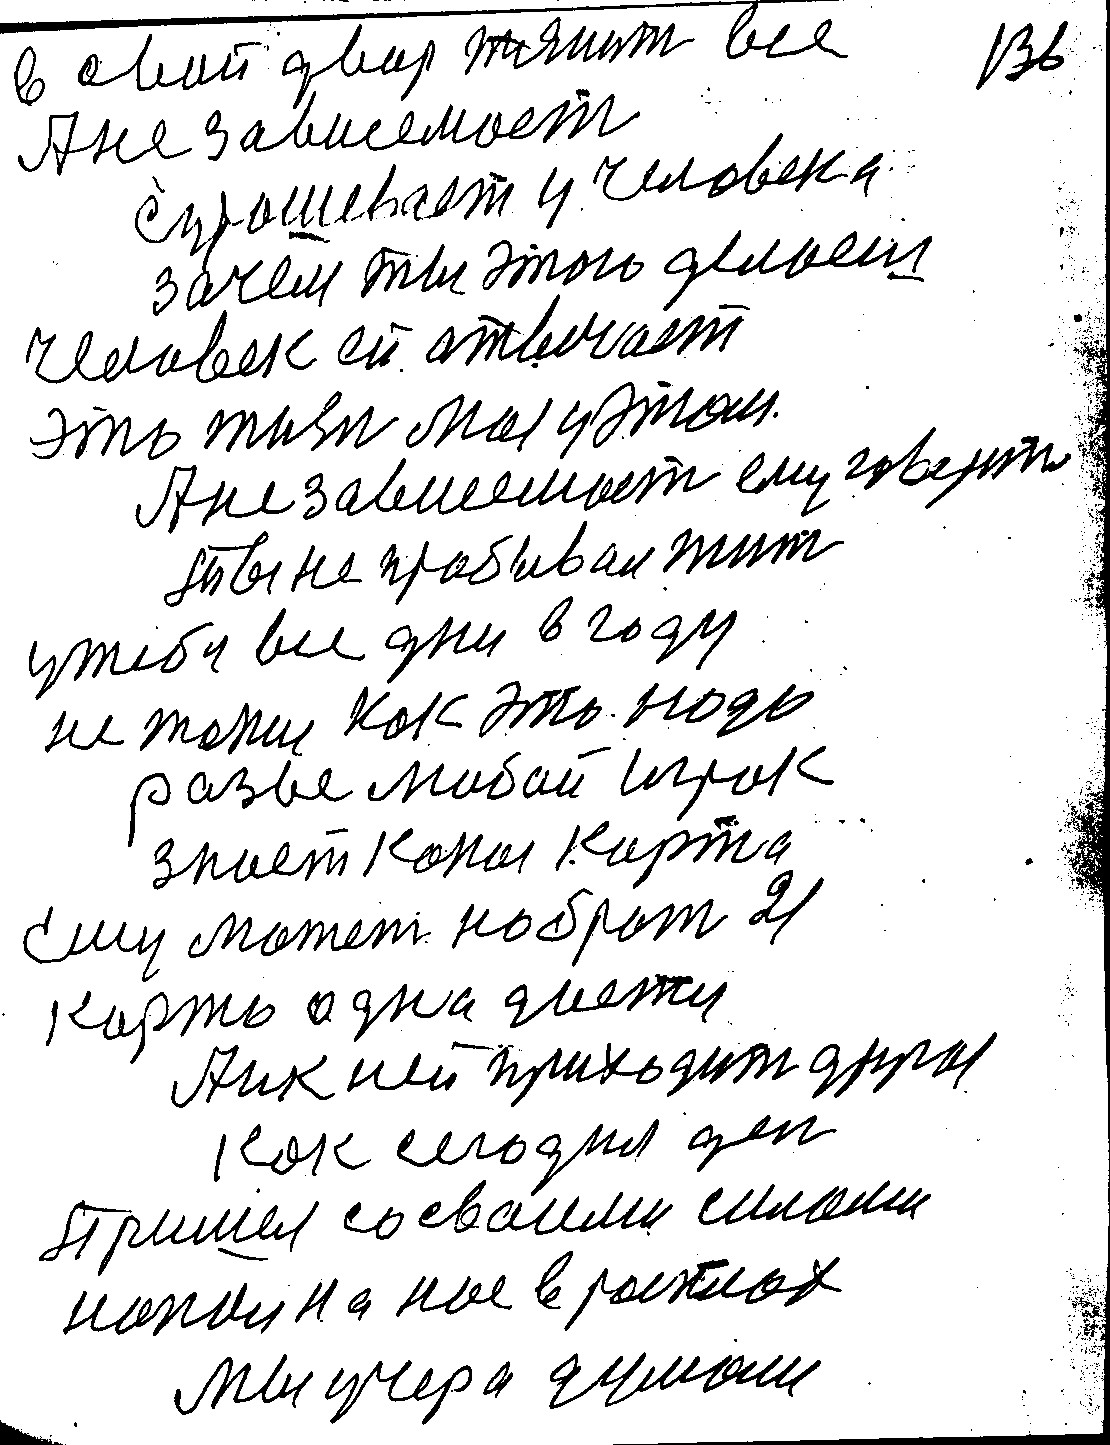 в свой двор тянит все 136
А не зависемост
Спрошевает у человека
зачем ты этого делоеш
человек ей отвичает
это жизн моя у этом.
А не зависемост ему говерит
Ты не пробывал жит
у тебя все дни в году
не такии как это нодо
разве любой игрок
знает какая карта
Ему может нобрат 21
карто одна
А к ней приходит другоя
Как сегодня ден
Пришел со своими силоми
на нос в росплох
Мы учера думоли